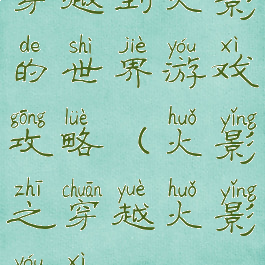 穿越到火影
de shì jiè yóu xì
的世界游戏
gōng lüè huǒ yǐng
攻略（火影
zhī chuān yuè huǒ yǐng
之穿越火影
yóu xì